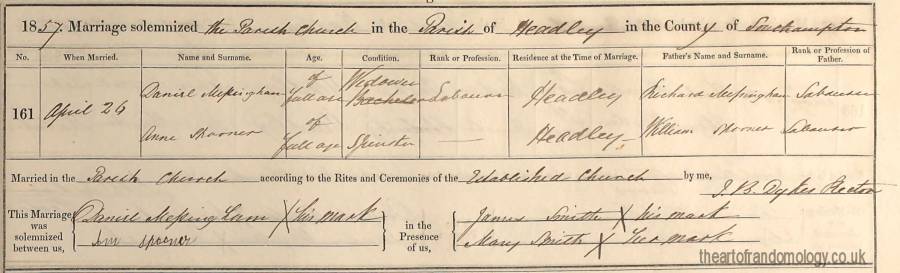 1857. Marriage solemnized the Parish Church in the Parish of Headley in the County of Southampton
No. When Married. Name and Surname. Age. Condition. Rank or Profession. Residence at the Time of Marriage. Father's Name and Surname. Rank or Profession of Father.
161 April 26 Daniel Messingham of full age Widower Bachelor Labourer Headley Richard Messingham Labourer
Anne Spooner of full age Spinster — Headley William Spooner Labourer
Married in the Parish Church according to the Rites and Ceremonies of the Established Church by me, J. B. Dykes Rector
This Marriage was solemnized between us, Daniel Messingham X his mark
Ann Spooner
in the Presence of us, James Smith X his mark
Mary Smith X her mark
theartofrandomology.co.uk